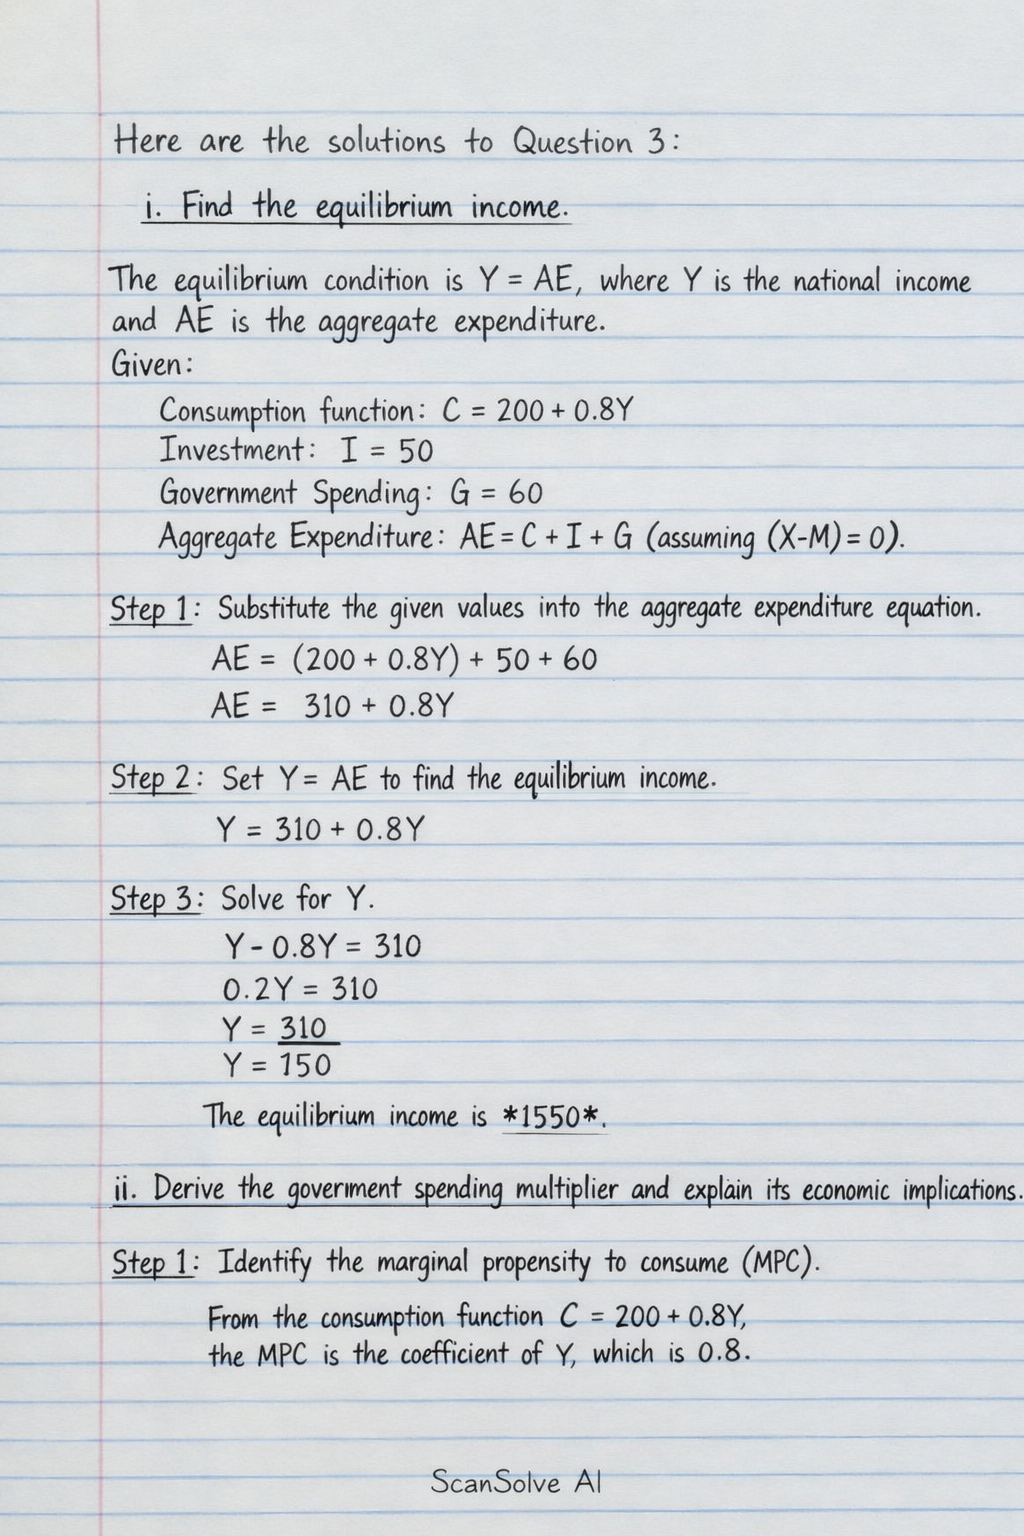 Here are the solutions to Question 3:
i. Find the equilibrium income.
The equilibrium condition is Y = AE, where Y is the national income
and AE is the aggregate expenditure.
Given:
Consumption function: C = 200 + 0.8Y
Investment: I = 50
Government Spending: G = 60
Aggregate Expenditure: AE = C + I + G (assuming (X-M) = 0).
Step 1: Substitute the given values into the aggregate expenditure equation.
AE = (200 + 0.8Y) + 50 + 60
AE = 310 + 0.8Y
Step 2: Set Y = AE to find the equilibrium income.
Y = 310 + 0.8Y
Step 3: Solve for Y.
Y - 0.8Y = 310
0.2Y = 310
Y = 310
Y = 150
The equilibrium income is *1550*.
ii. Derive the goverıment spending multiplier and explain its economic implications.
Step 1: Identify the marginal propensity to consume (MPC).
From the consumption function C = 200 + 0.8Y,
the MPC is the coefficient of Y, which is 0.8.
ScanSolve AI